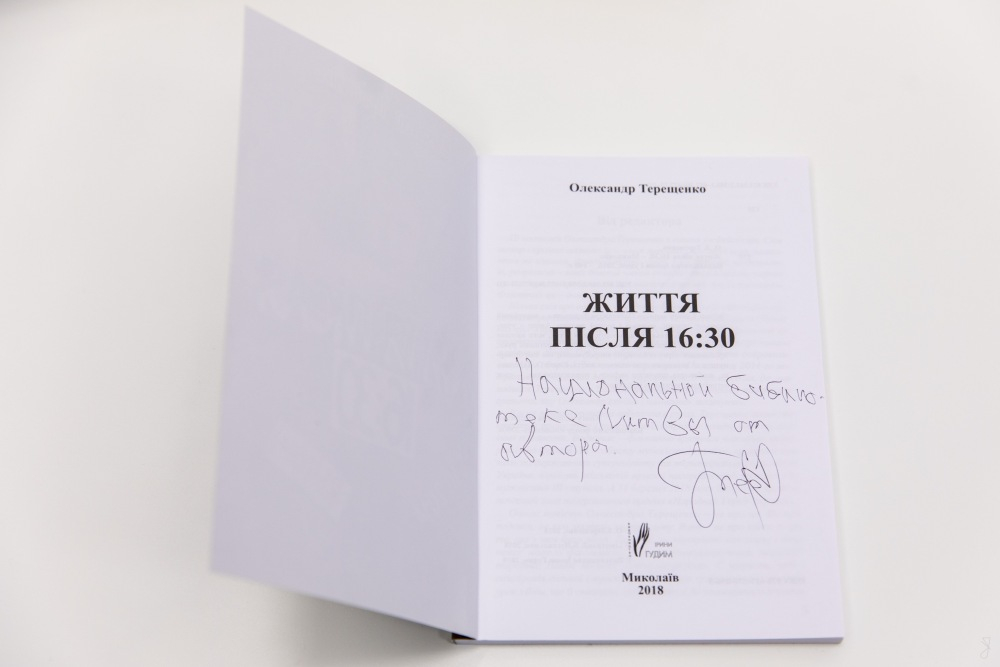 Олександр Терещенко
ЖИТТЯ
ПІСЛЯ 16:30
Национальной библио-
теке Литвы от
автора.
ІРИНИ
ГУДИМ
Миколаїв
2018